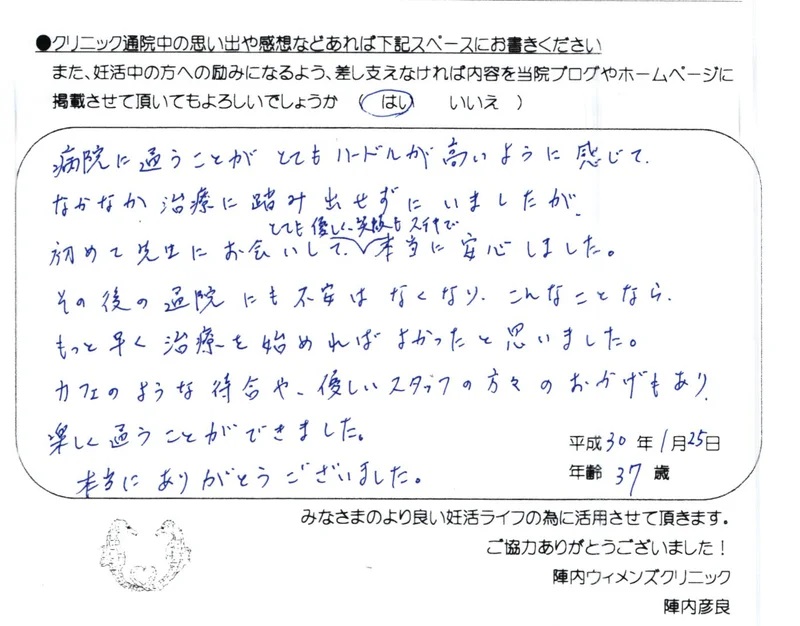 ●クリニック通院中の思い出や感想などあれば下記スペースにお書きください
また、妊活中の方への励みになるよう、差し支えなければ内容を当院ブログやホームページに
掲載させて頂いてもよろしいでしょうか （ はい　いいえ ）
病院に通うことが とてもハードルが高いように感じて、
なかなか治療に踏み出せずにいましたが、
とても優しく、笑顔もステキで
初めて先生にお会いして、本当に安心しました。
その後の通院にも不安はなくなり、こんなことなら、
もっと早く治療を始めればよかったと思いました。
カフェのような待合や、優しいスタッフの方々のおかげもあり、
楽しく通うことができました。
本当にありがとうございました。
平成30年1月25日
年齢 37 歳
みなさまのより良い妊活ライフの為に活用させて頂きます。
ご協力ありがとうございました！
陣内ウィメンズクリニック
陣内彦良